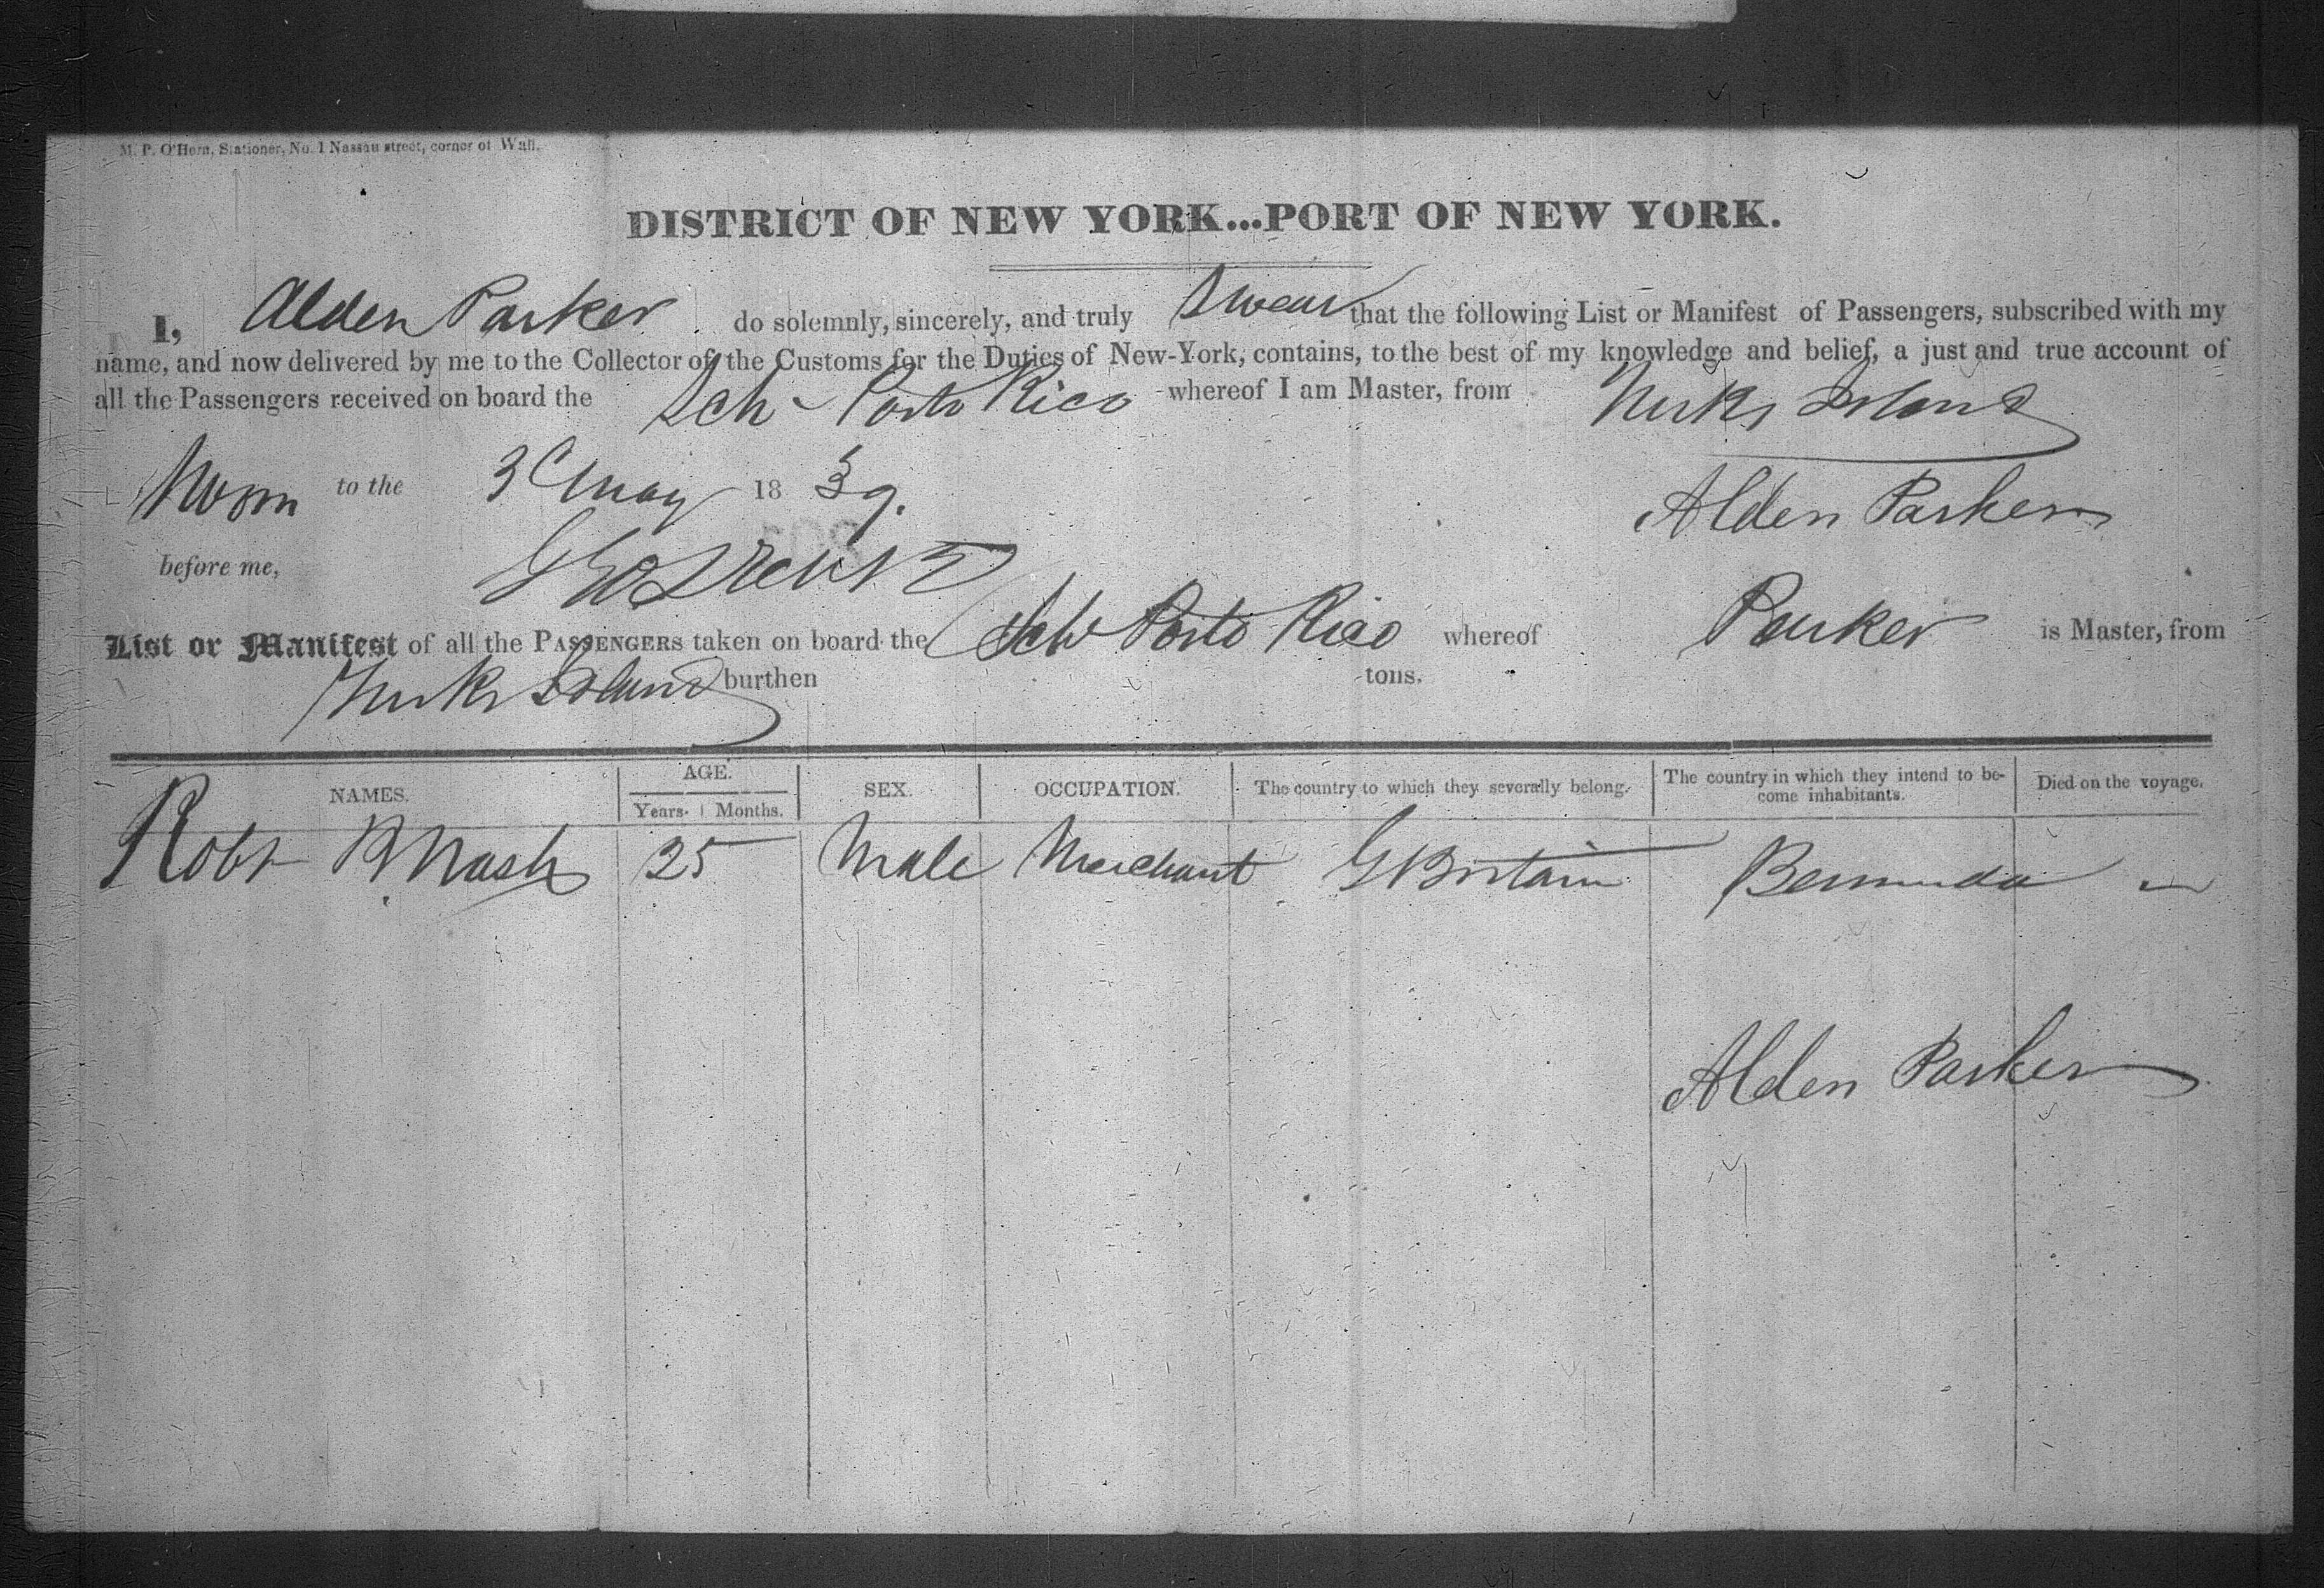 M. P. O'Hern, Stationer, No. 1 Nassau street, corner of Wall.
DISTRICT OF NEW YORK...PORT OF NEW YORK.
I, Alden Parker do solemnly, sincerely, and truly Swear that the following List or Manifest of Passengers, subscribed with my
name, and now delivered by me to the Collector of the Customs for the Duties of New-York, contains, to the best of my knowledge and belief, a just and true account of
all the Passengers received on board the Sch Porto Rico whereof I am Master, from Turks Island
Sworn to the 3 May 1839. Alden Parker
before me,
List or Manifest of all the PASSENGERS taken on board the Sch Porto Rico whereof Parker is Master, from
Turks Island burthen tons.
NAMES. AGE. SEX. OCCUPATION. The country to which they severally belong. The country in which they intend to be-
come inhabitants. Died on the voyage.
Years. Months.
Robt B Nash 25 Male Merchant G Britain Bermuda
Alden Parker